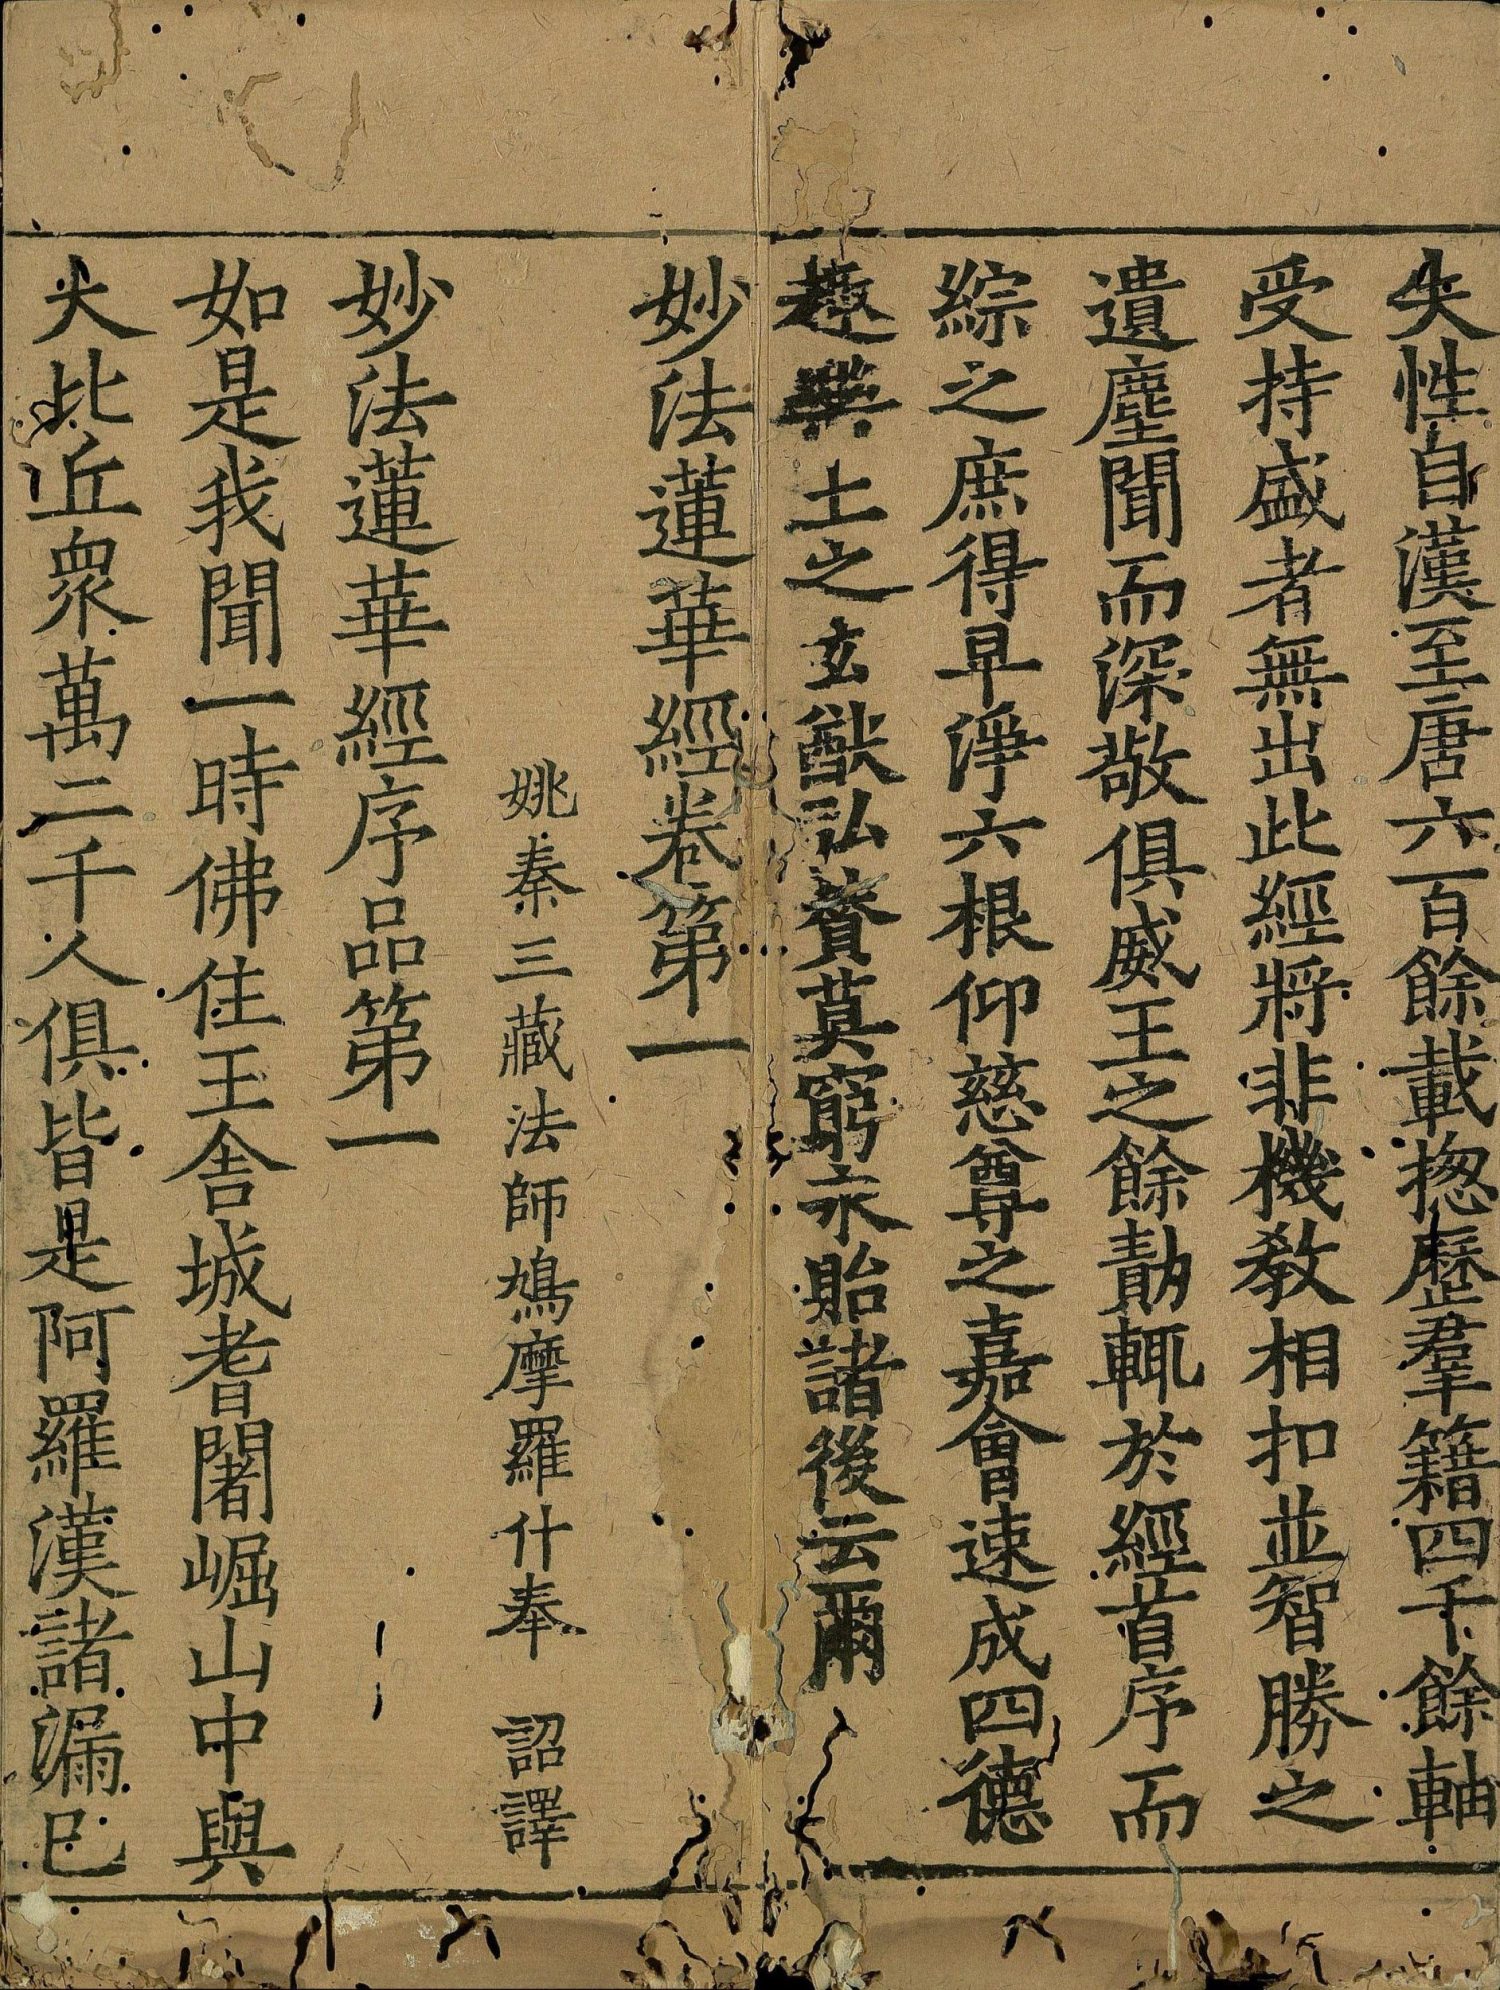 失性自漢至唐六百餘載揔歷羣籍四千餘軸
受持盛者無出此經將非機教相扣並智勝之
遺塵聞而深敬俱威王之餘勣輒於經首序而
綜之庶得早淨六根仰慈尊之嘉會速成四德
趣樂土之玄猷弘贊莫窮永貽諸後云爾
妙法蓮華經卷第一
姚秦三藏法師鳩摩羅什奉 詔譯
妙法蓮華經序品第一
如是我聞一時佛住王舍城耆闍崛山中與
大比丘眾萬二千人俱皆是阿羅漢諸漏已